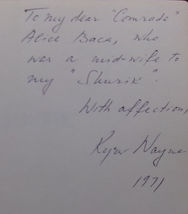 To my dear "Comrade"
Alice Baca, who
was a mid-wife to
my "Shurik".
With affection,
1971